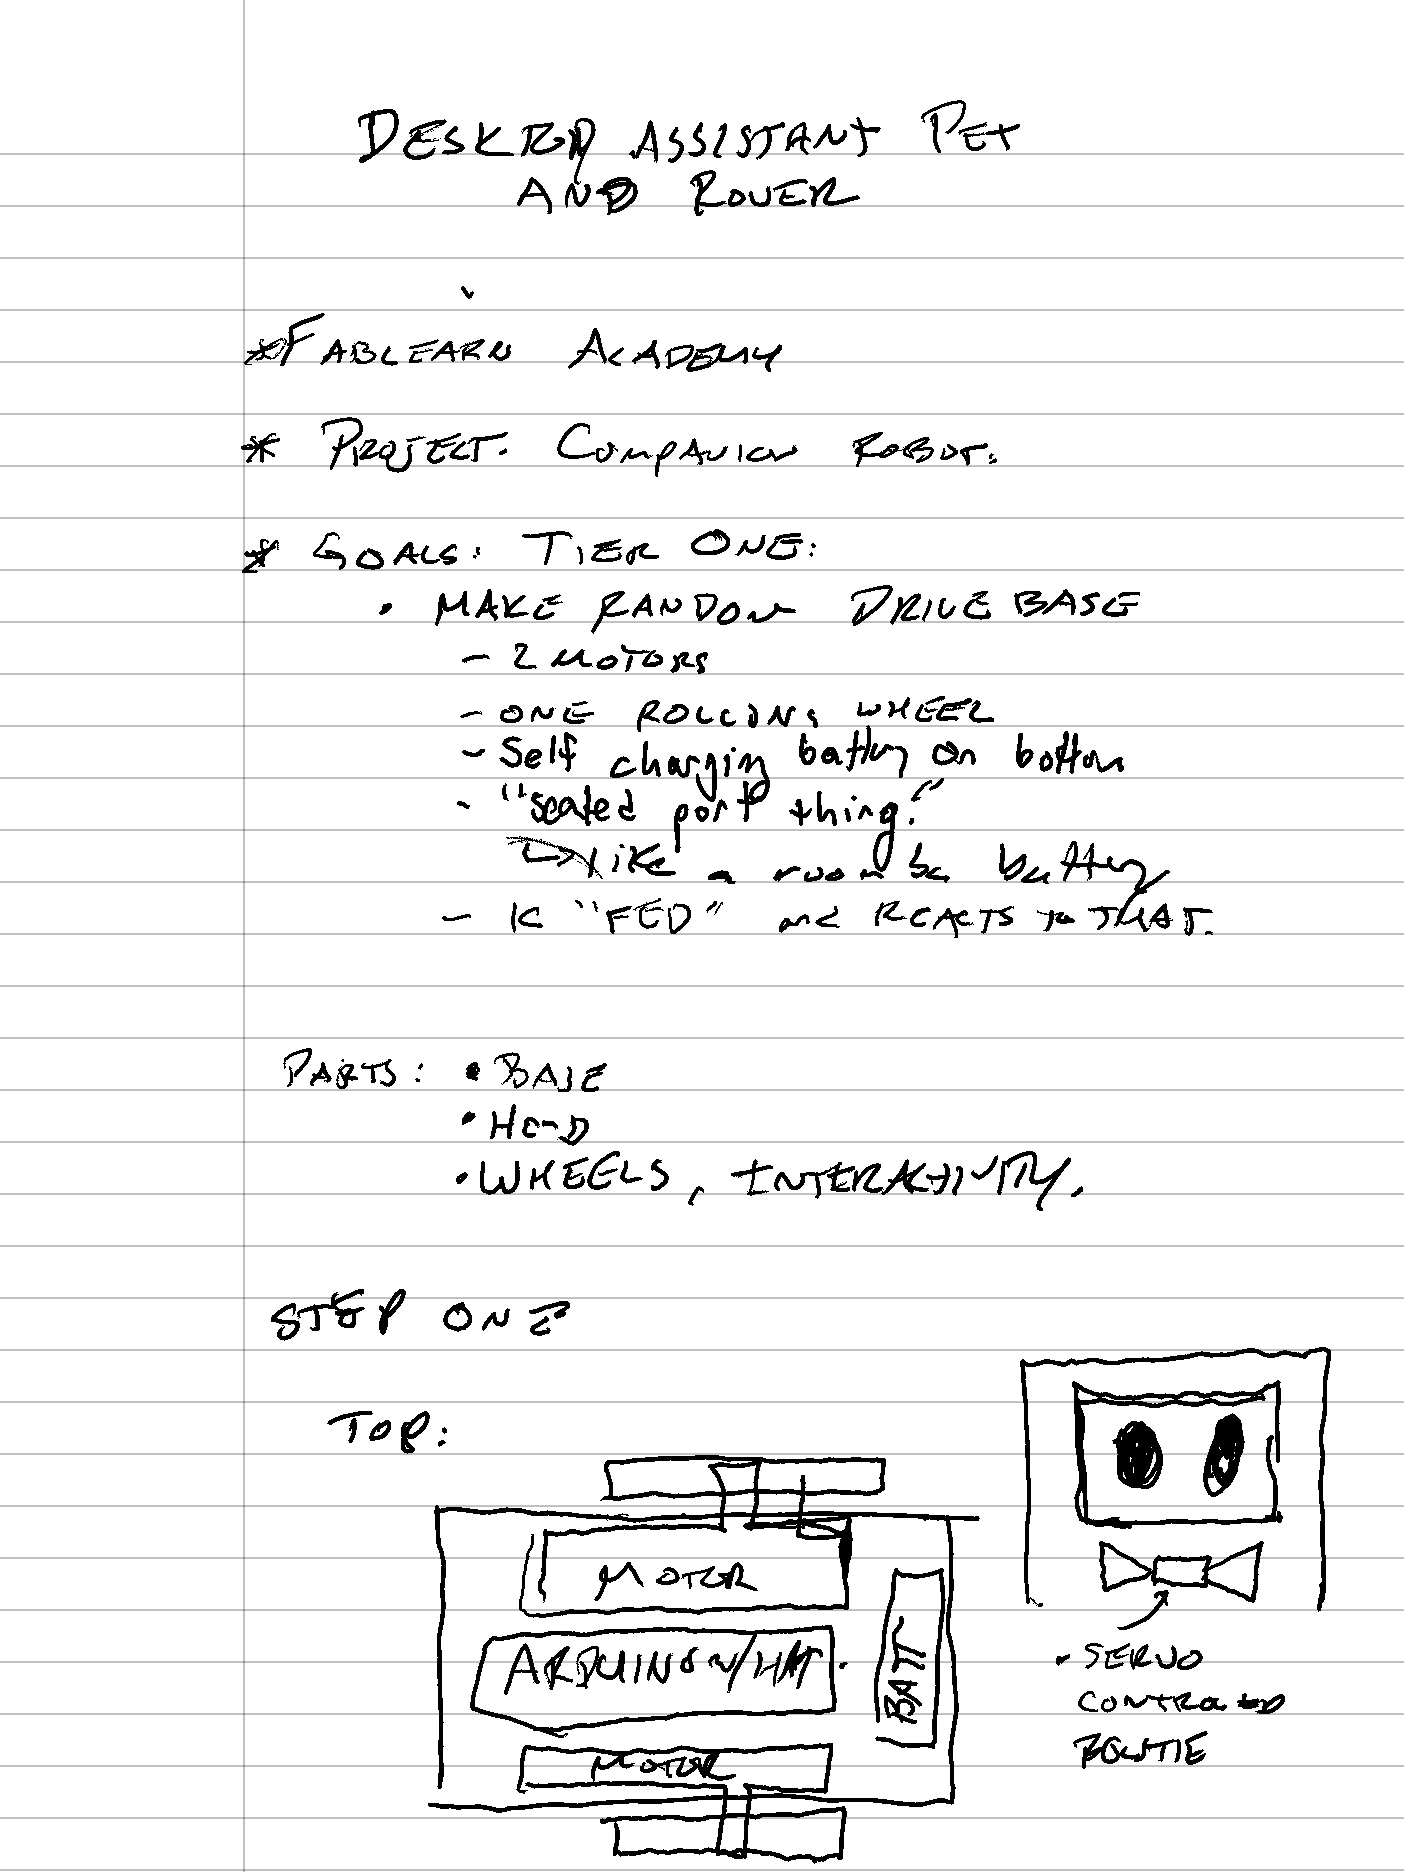 DESKTOP ASSISTANT PET
AND ROVER
* FABLEARN ACADEMY
* PROJECT. COMPANION ROBOT.
* GOALS: TIER ONE:
• MAKE RANDOM DRIVE BASE
- 2 MOTORS
- ONE ROLLING WHEEL
- Self charging battery on bottom
- "sealed port thing."
↳ like a roomba battery
- IS "FED" and REACTS TO THAT.
PARTS: • BASE
• HEAD
• WHEELS, INTERACTIVITY.
STEP ONE
TOP:
MOTOR
ARDUINO W/HAT.
BATT
MOTOR
• SERVO
CONTROLLED
BOWTIE